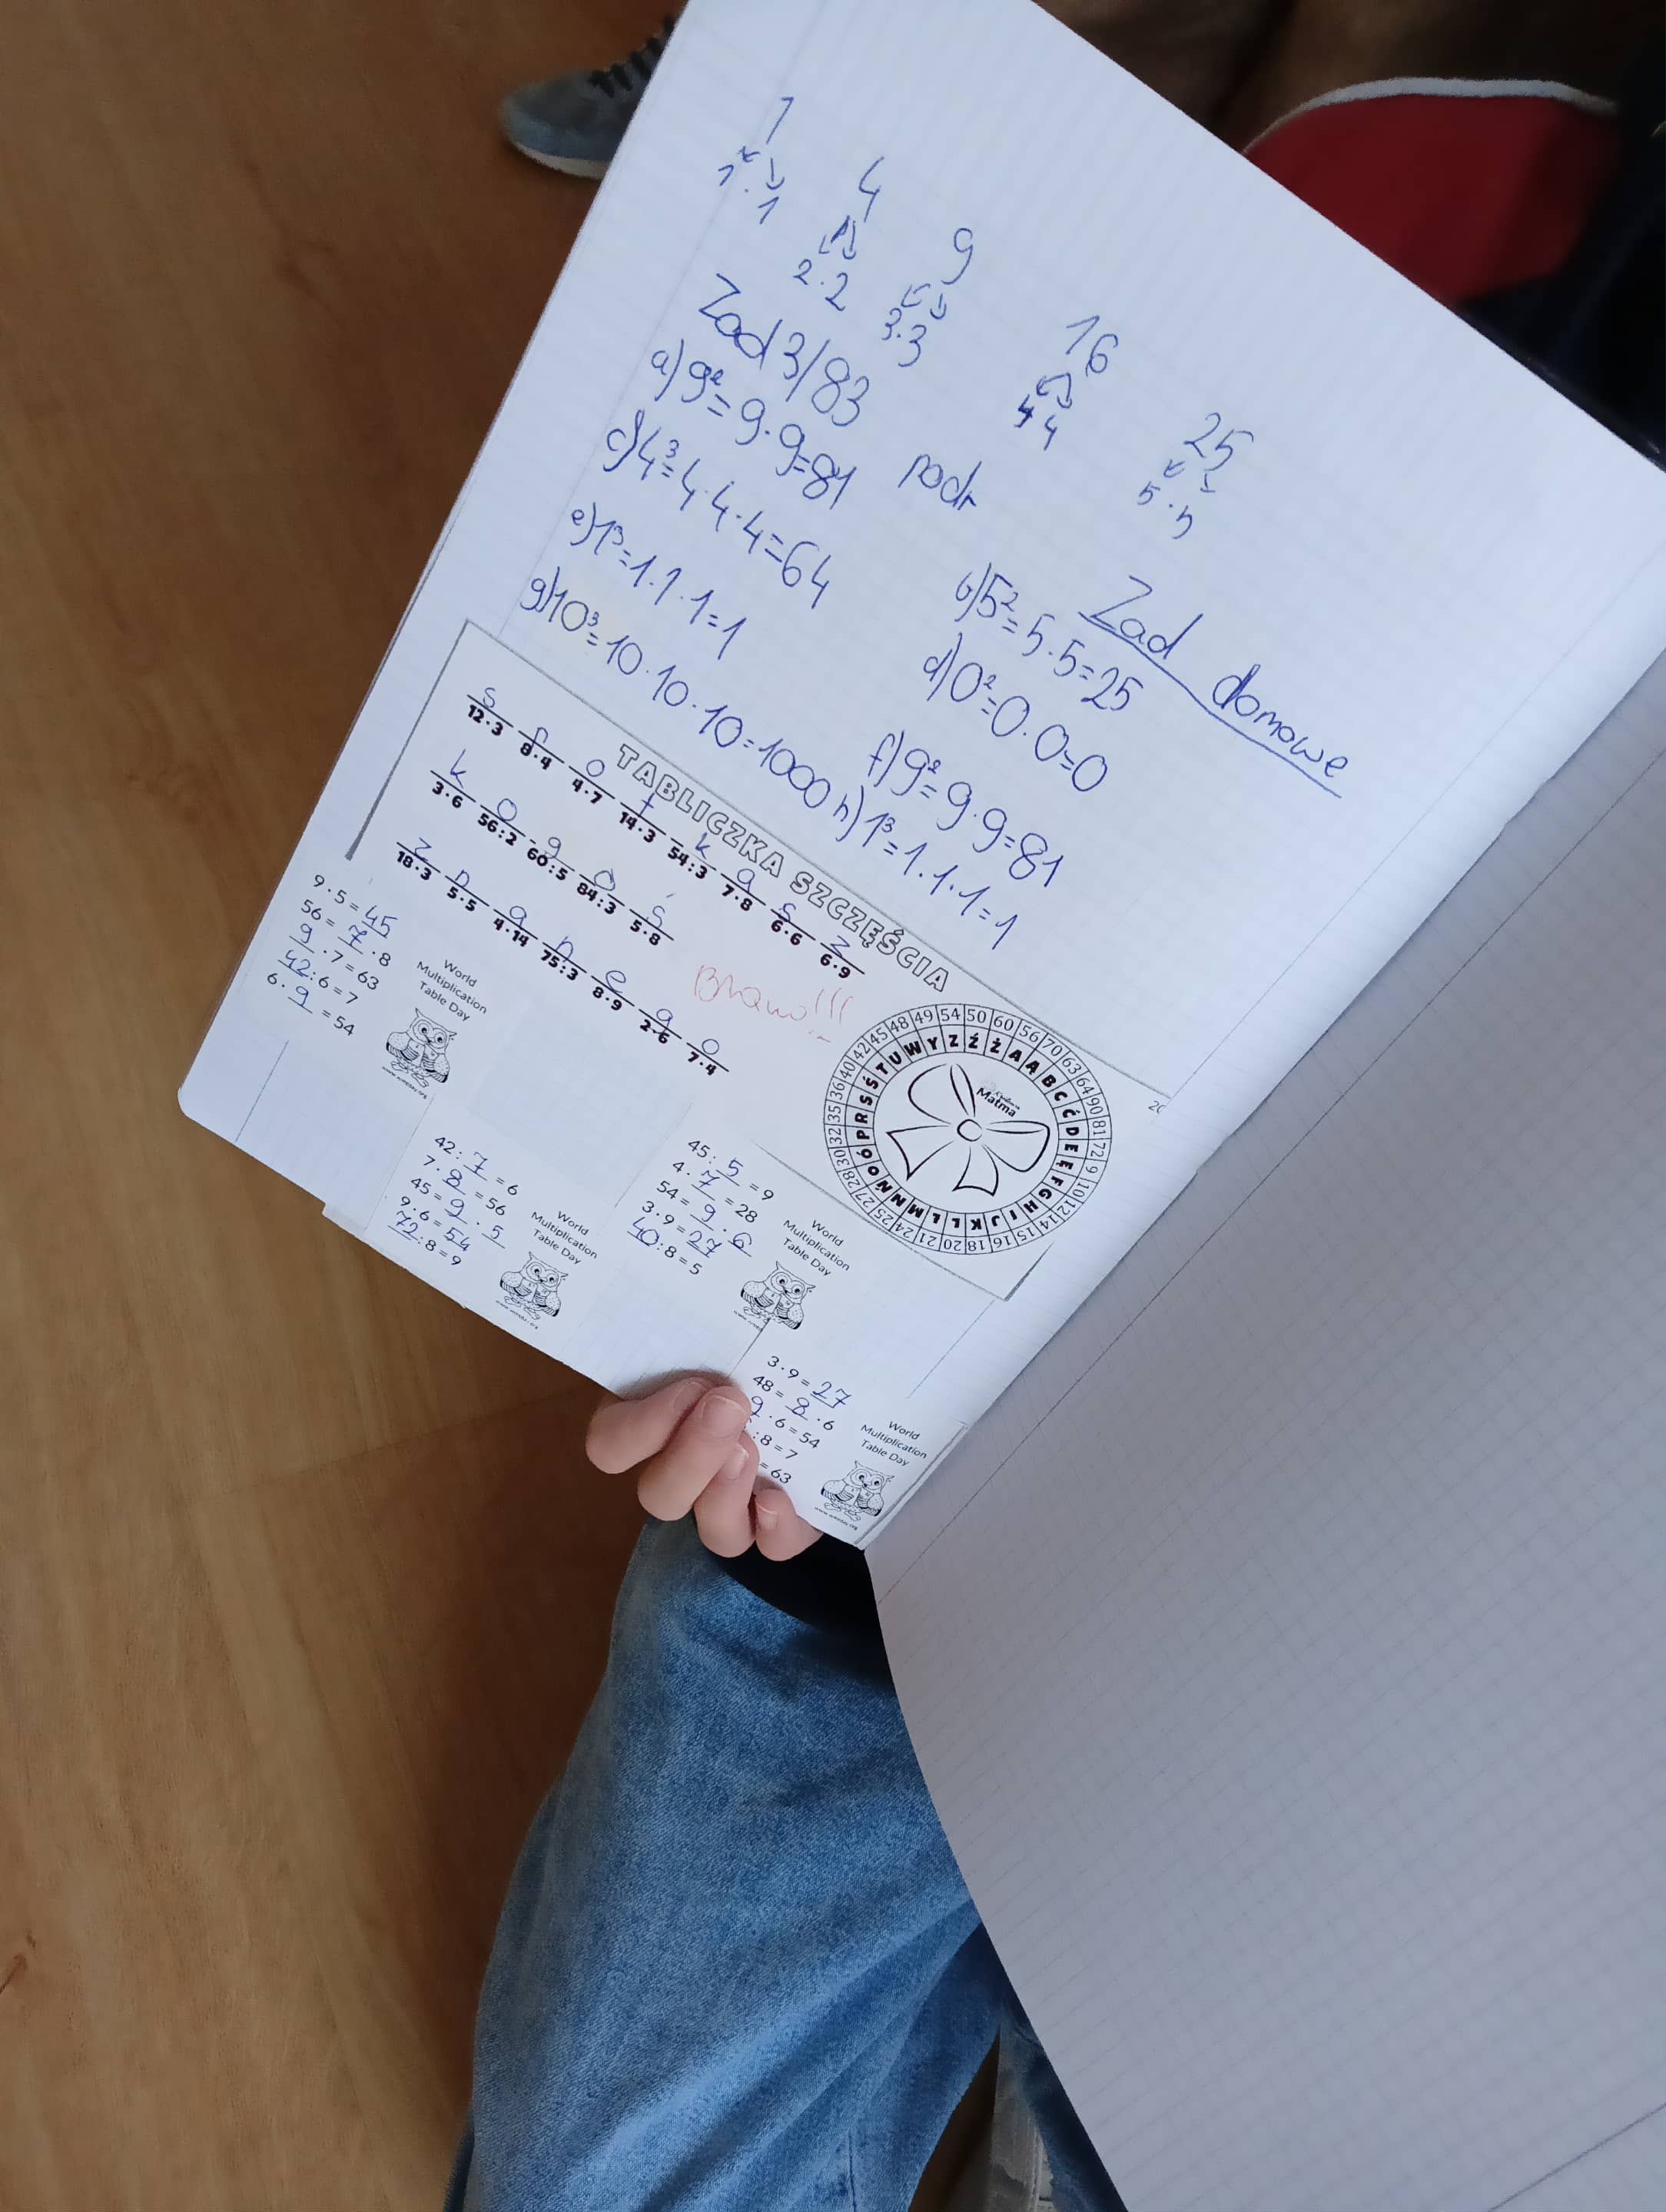 1 4 9 16 25
1·1 2·2 3·3 4 4 5·5
Zad domowe
Zad 3/83 podr
a) 9²=9·9=81 b) 5²=5·5=25
c) 4³=4·4·4=64 d) 0²=0·0=0
e) 1³=1·1·1=1 f) 9²=9·9=81
g) 10³=10·10·10=1000 h) 1³=1·1·1=1
TABLICZKA SZCZĘŚCIA
s p o t k a s z
12·3 8·4 4·7 14·3 54:3 7·8 6·6 6·9
k o g o ś
3·6 56:2 60:5 84:3 5·8
z n a n e g o
18·3 5·5 4·14 75:3 8·9 2·6 7·4
Brawo!!!
48 49 54 50 60 56 70 63 64 90 81 72 9 10 12 14 15 16 18 20 21 24 25 27 28 30 32 35 36 40 42 45
W Y Z Ź Ż A Ą B C Ć D E Ę F G H I J K L Ł M N Ń O Ó P R S Ś T U
Matma
9·5=45
56=7·8
9·7=63
42:6=7
6·9=54
World
Multiplication
Table Day
42:7=6
7·8=56
45=9·5
9·6=54
72:8=9
World
Multiplication
Table Day
45:5=9
4·7=28
54=9·6
3·9=27
40:8=5
World
Multiplication
Table Day
3·9=27
48=8·6
9·6=54
:8=7
=63
World
Multiplication
Table Day